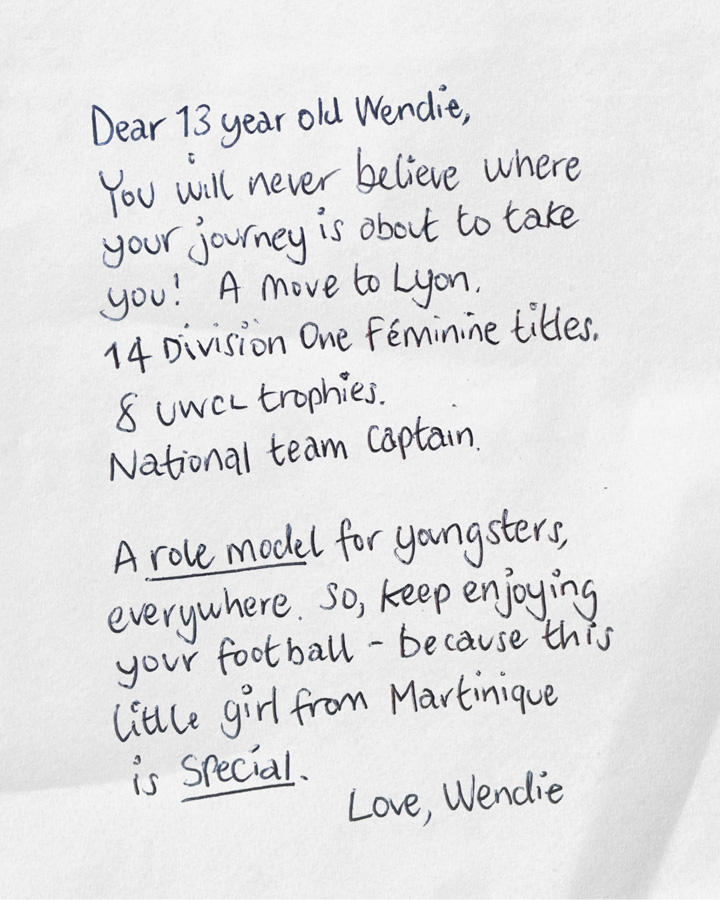 Dear 13 year old Wendie,
You will never believe where
your journey is about to take
you! A move to Lyon.
14 Division One Féminine titles.
8 UWCL trophies.
National team captain.
A role model for youngsters,
everywhere. So, keep enjoying
your football - because this
little girl from Martinique
is special.
Love, Wendie